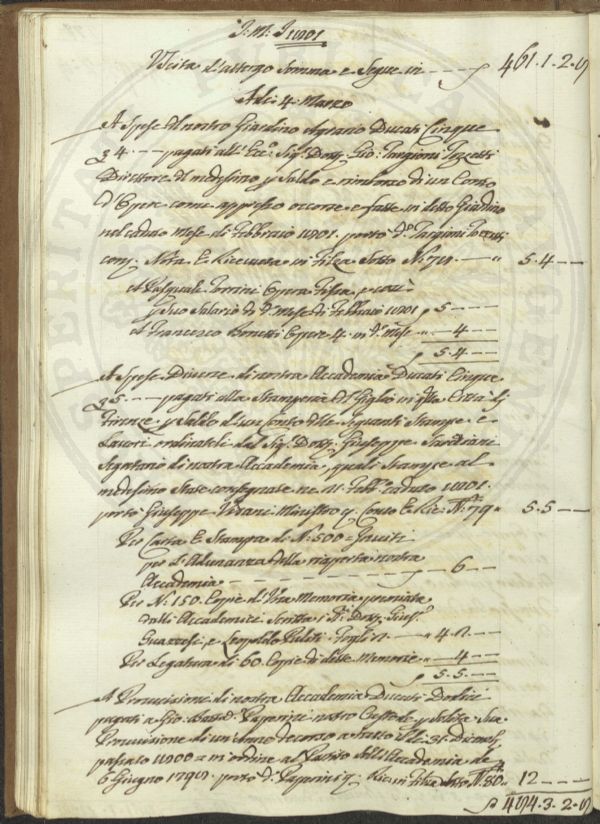 J. M. J. 1801
Uscita d'attergo somma e Segue in ƒ 461.1.2.8
Adì 4 Marzo
A Spese del nostro Giardino Agrario Ducati Cinque
4 pagati all' Ecc.º Sig.r Dott. Gio. Targioni Tozzetti
Direttore del medesimo p Saldo e rimborso di un Conto
d'Opere come appresso occorse e fatte in detto Giardino
nel caduto Mese di Febbraio 1801. portò d.º Targioni Tozzetti
come Nota E Ricevuta in Filza Sotto N.º 78. 5.4
A Pasquale Pomini Opera fissa, e
p Suo Salario di d.º Mese di Febbraio 1801 ƒ 5
A Francesco Bonetti Opere 4. in d.º Mese 4
ƒ 5.4
A Spese Diverse di nostra Accademia Ducati Cinque
5 pagati alla Stamperia del Giglio in q.ta Città di
Firenze p Saldo d'un Conto delle Seguenti Stampe e
Lavori ordinateli dal Sig.r Dott. Giuseppe Sarchiani
Segretario di nostra Accademia, quali Stampe al
medesimo State consegnate ne Febb.º caduto 1801.
portò Giuseppe Vivani Ministro Conto E Ric. N.º 79 5.5
Per Carta E Stampa di N.º 500 Inviti
per l'Adunanza della riaperta nostra
Accademia 6
Per N.º 150. Copie d'Una Memoria premiata
dalli Accademici Scritta Dott. Gius.e
e Leopoldo Fogli
Per Legatura di 60. Copie di dette Memorie 4
ƒ 5.5
A Provvisione di nostra Accademia Ducati Dodici
pagati a Gio. Batta Vaporini nostro Custode p Solita Sua
Provvisione di un Anno decorso a tutto il dì 31. Dicemb.
passato 1800 in ordine al Partito dell'Accademia de
6 Giugno 1798. portò d.º Vaporini Ric. in Filza sotto N.º 80 12
ƒ 484.3.2.8